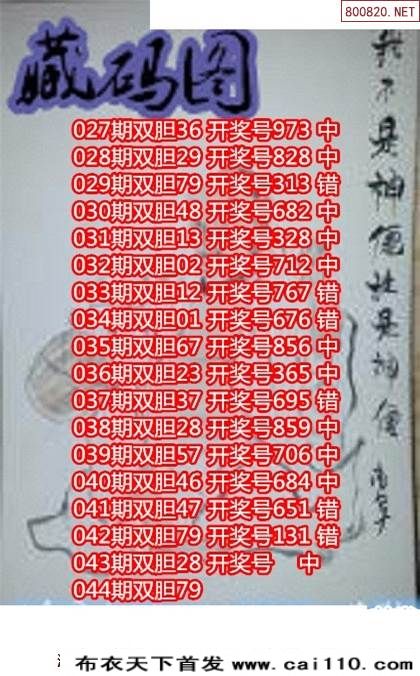 800820.NET
藏码图
027期双胆36 开奖号973 中
028期双胆29 开奖号828 中
029期双胆79 开奖号313 错
030期双胆48 开奖号682 中
031期双胆13 开奖号328 中
032期双胆02 开奖号712 中
033期双胆12 开奖号767 错
034期双胆01 开奖号676 错
035期双胆67 开奖号856 中
036期双胆23 开奖号365 中
037期双胆37 开奖号695 错
038期双胆28 开奖号859 中
039期双胆57 开奖号706 中
040期双胆46 开奖号684 中
041期双胆47 开奖号651 错
042期双胆79 开奖号131 错
043期双胆28 开奖号 中
044期双胆79
我不是神仙
是神仙
布衣天下首发 www.cai110.com